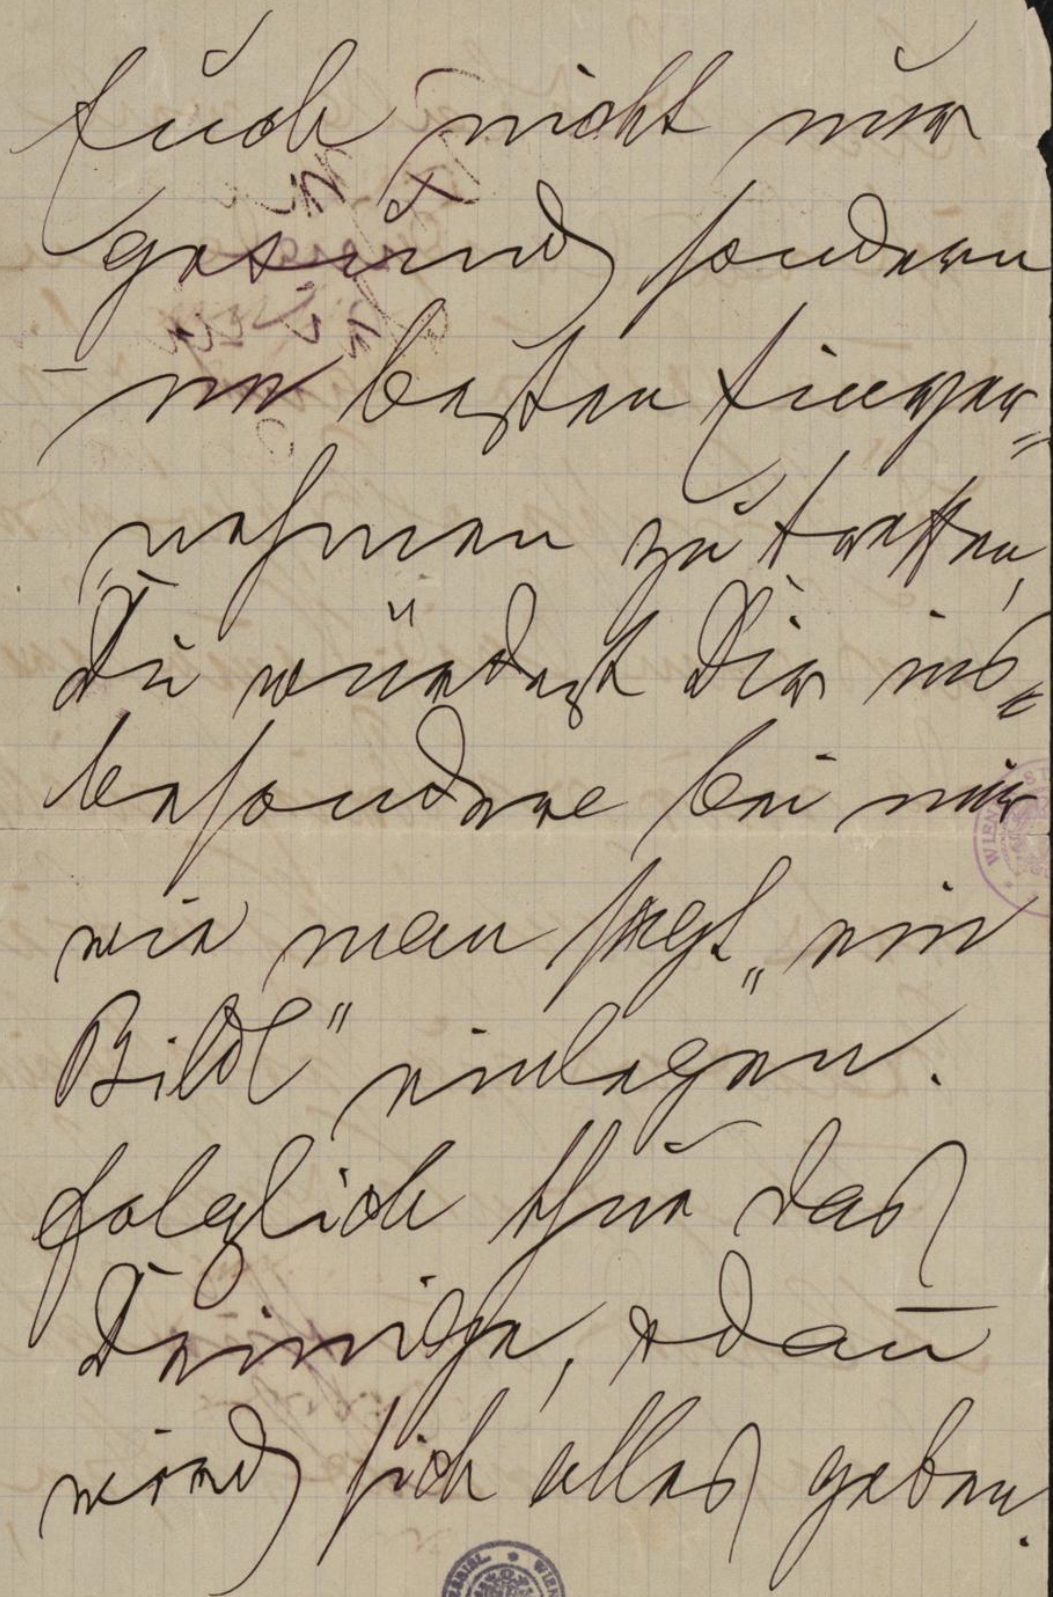 Euch nicht nur
gesund sondern
im besten Einver=
nehmen zu treffen,
Du würdest Dir ins=
besondere bei mir
wie man sagt „ein
Bildl" einlegen.
folglich thue das
Deinige, dañ
wird sich alles geben.
WIEN
WIEN